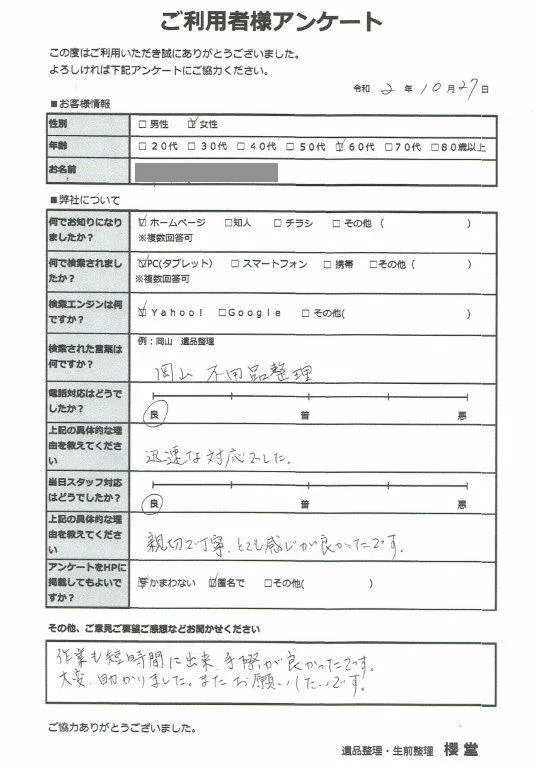 ご利用者様アンケート
この度はご利用いただき誠にありがとうございました。
よろしければ下記アンケートにご協力ください。
令和 2 年 10 月 27 日
■お客様情報
性別 □男性 ☑女性
年齢 □20代 □30代 □40代 □50代 ☑60代 □70代 □80歳以上
お名前
■弊社について
何でお知りになり
ましたか？
☑ホームページ □知人 □チラシ □その他（ ）
※複数回答可
何で検索されまし
たか？
☑PC(タブレット) □スマートフォン □携帯 □その他（ ）
※複数回答可
検索エンジンは何
ですか？
☑Yahoo! □Google □その他( )
検索された言葉は
何ですか？
例：岡山 遺品整理
岡山 不用品整理
電話対応はどうで
したか？
良 普 悪
上記の具体的な理
由を教えてくださ
い
迅速な対応でした。
当日スタッフ対応
はどうでしたか？
良 普 悪
上記の具体的な理
由を教えてくださ
い
親切で丁寧、とても感じが良かったです。
アンケートをHPに
掲載してもよいで
すか？
☑かまわない ☑匿名で □その他( )
その他、ご意見ご要望ご感想などお聞かせください
作業も短時間に出来、手際が良かったです。
大変、助かりました。またお願いしたいです。
ご協力ありがとうございました。
遺品整理・生前整理 櫻堂